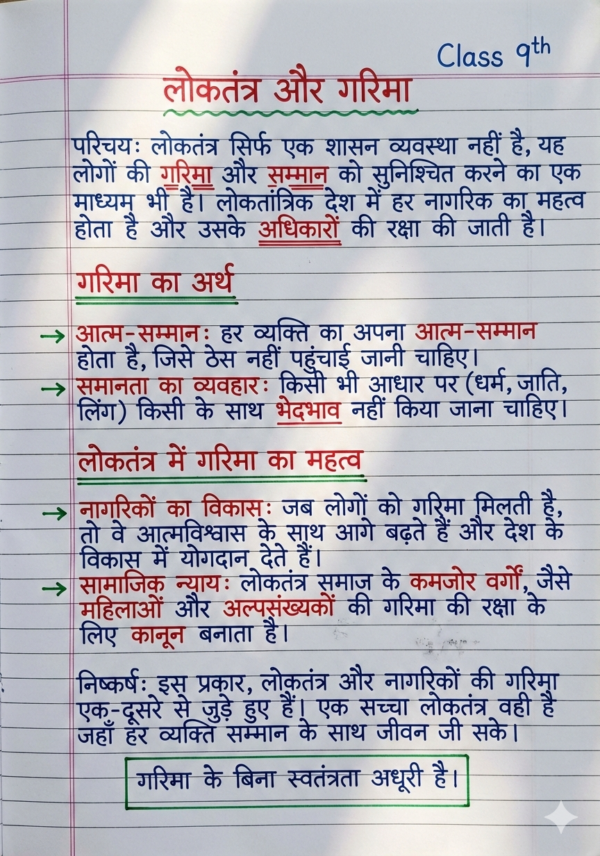 Class 9th
लोकतंत्र और गरिमा
परिचय: लोकतंत्र सिर्फ एक शासन व्यवस्था नहीं है, यह
लोगों की गरिमा और सम्मान को सुनिश्चित करने का एक
माध्यम भी है। लोकतांत्रिक देश में हर नागरिक का महत्व
होता है और उसके अधिकारों की रक्षा की जाती है।
गरिमा का अर्थ
→ आत्म-सम्मान: हर व्यक्ति का अपना आत्म-सम्मान
होता है, जिसे ठेस नहीं पहुंचाई जानी चाहिए।
→ समानता का व्यवहार: किसी भी आधार पर (धर्म, जाति,
लिंग) किसी के साथ भेदभाव नहीं किया जाना चाहिए।
लोकतंत्र में गरिमा का महत्व
→ नागरिकों का विकास: जब लोगों को गरिमा मिलती है,
तो वे आत्मविश्वास के साथ आगे बढ़ते हैं और देश के
विकास में योगदान देते हैं।
→ सामाजिक न्याय: लोकतंत्र समाज के कमजोर वर्गों, जैसे
महिलाओं और अल्पसंख्यकों की गरिमा की रक्षा के
लिए कानून बनाता है।
निष्कर्ष: इस प्रकार, लोकतंत्र और नागरिकों की गरिमा
एक-दूसरे से जुड़े हुए हैं। एक सच्चा लोकतंत्र वही है
जहाँ हर व्यक्ति सम्मान के साथ जीवन जी सके।
गरिमा के बिना स्वतंत्रता अधूरी है।